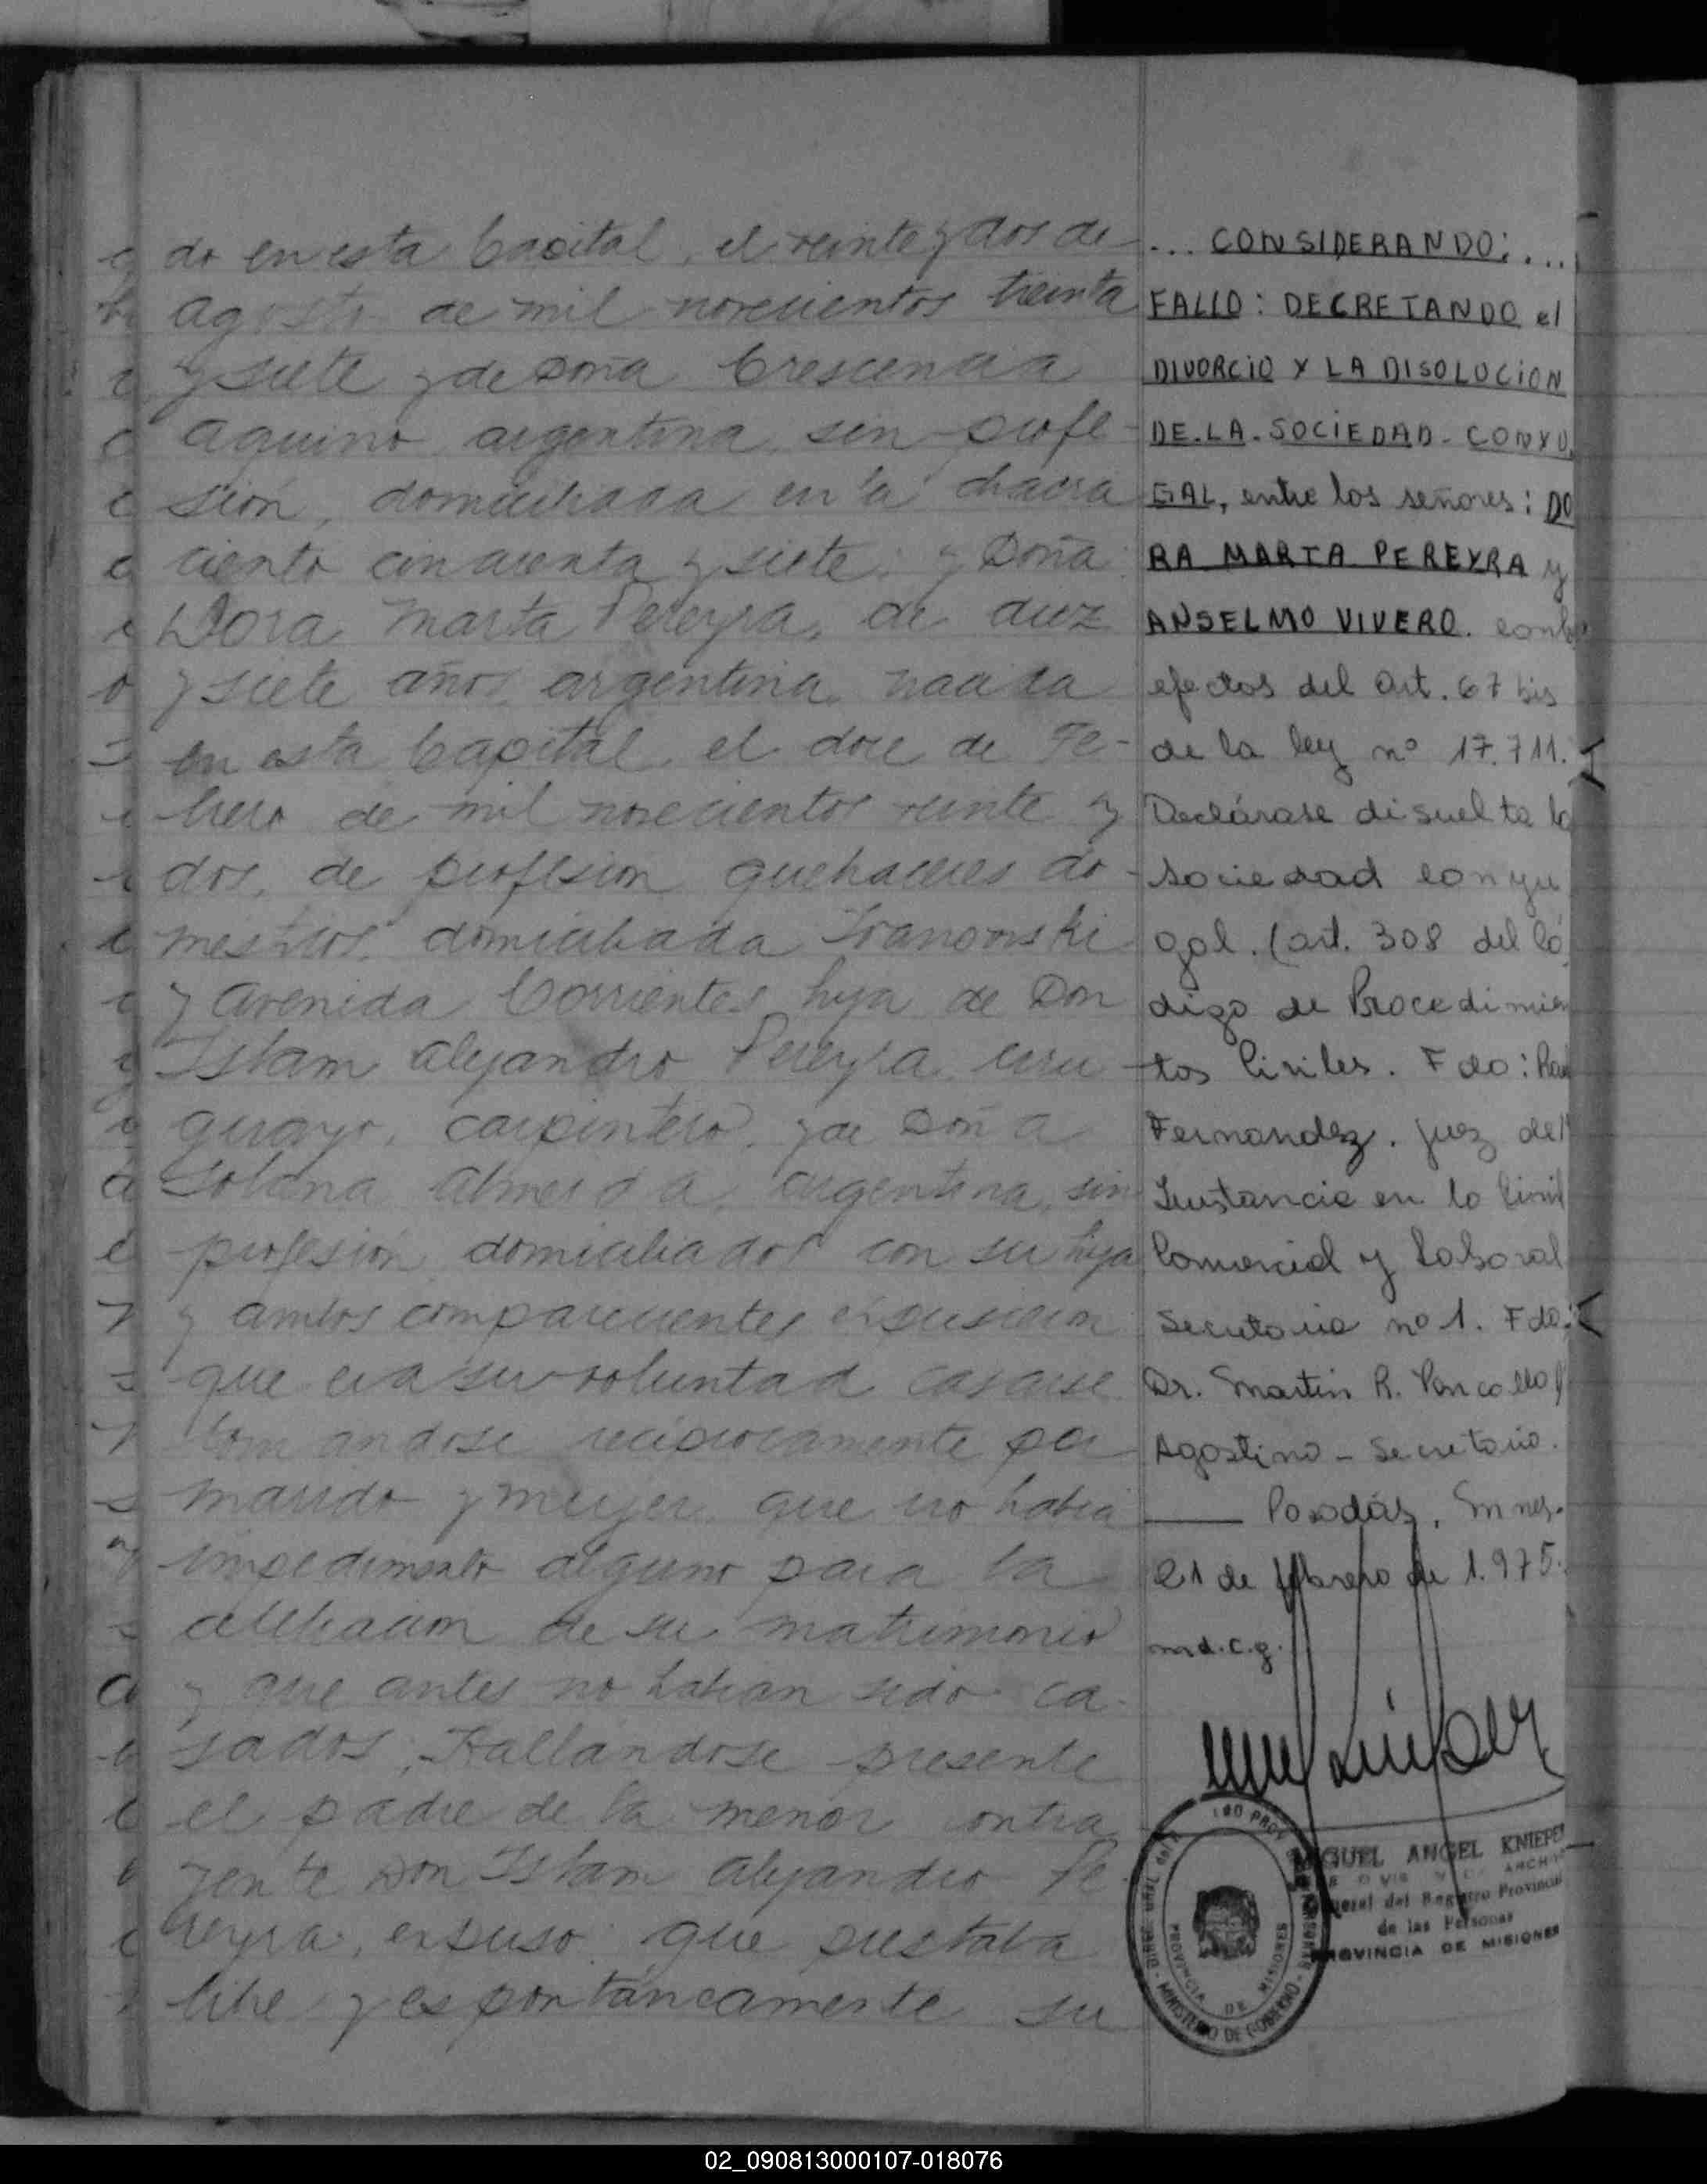 do en esta Capital, el veinte y dos de
agosto de mil novecientos treinta
y siete y de Doña Crescencia
Aquino, argentina, sin profe-
sión, domiciliada en la chacra
ciento cincuenta y siete; y Doña
Dora Marta Pereyra, de diez
y siete años, argentina, nacida
en esta Capital, el doce de Fe-
brero de mil novecientos veinte y
dos, de profesion quehaceres do-
mesticos, domiciliada
y Avenida Corrientes hija de Don
Alejandro Pereyra, uru
guayo, carpintero, y de Doña
Almeida, argentina, sin
profesión, domiciliados con su hija
y ambos comparecientes expusieron
que era su voluntad casarse
tomandose reciprocamente por
marido y mujer, que no habia
impedimento alguno para la
celebracion de su matrimonio
y que antes no habian sido ca-
sados; Hallandose presente
el padre de la menor contra
yente Don Alejandro Pe-
reyra, expuso: que prestaba
libre y espontaneamente su
... CONSIDERANDO: ...
FALLO: DECRETANDO el
DIVORCIO Y LA DISOLUCION
DE.LA.SOCIEDAD-CONYU
GAL, entre los señores: DO
RA MARTA PEREYRA y
ANSELMO VIVERO. con
efectos del art. 67 bis
de la ley nº 17.711.
Declárase disuelta la
sociedad conyu
gal. (art. 308 del Có
digo de Procedimien
tos Civiles. Fdo:
Fernandez. Juez de 1ª
Instancia en lo Civil
Comercial y Laboral
Secretaria nº 1. Fdo:
Dr. Martin R.
Agostino - Secretario.
Posadas, Mnes.
21 de febrero de 1.975.
m.d.c.g.
MIGUEL ANGEL KNIEPE
ARCHI
General del Registro Provincial
de las Personas
PROVINCIA DE MISIONES
PROVINCIA DE MISIONES
MINISTERIO DE GOBIERNO
02_090813000107-018076